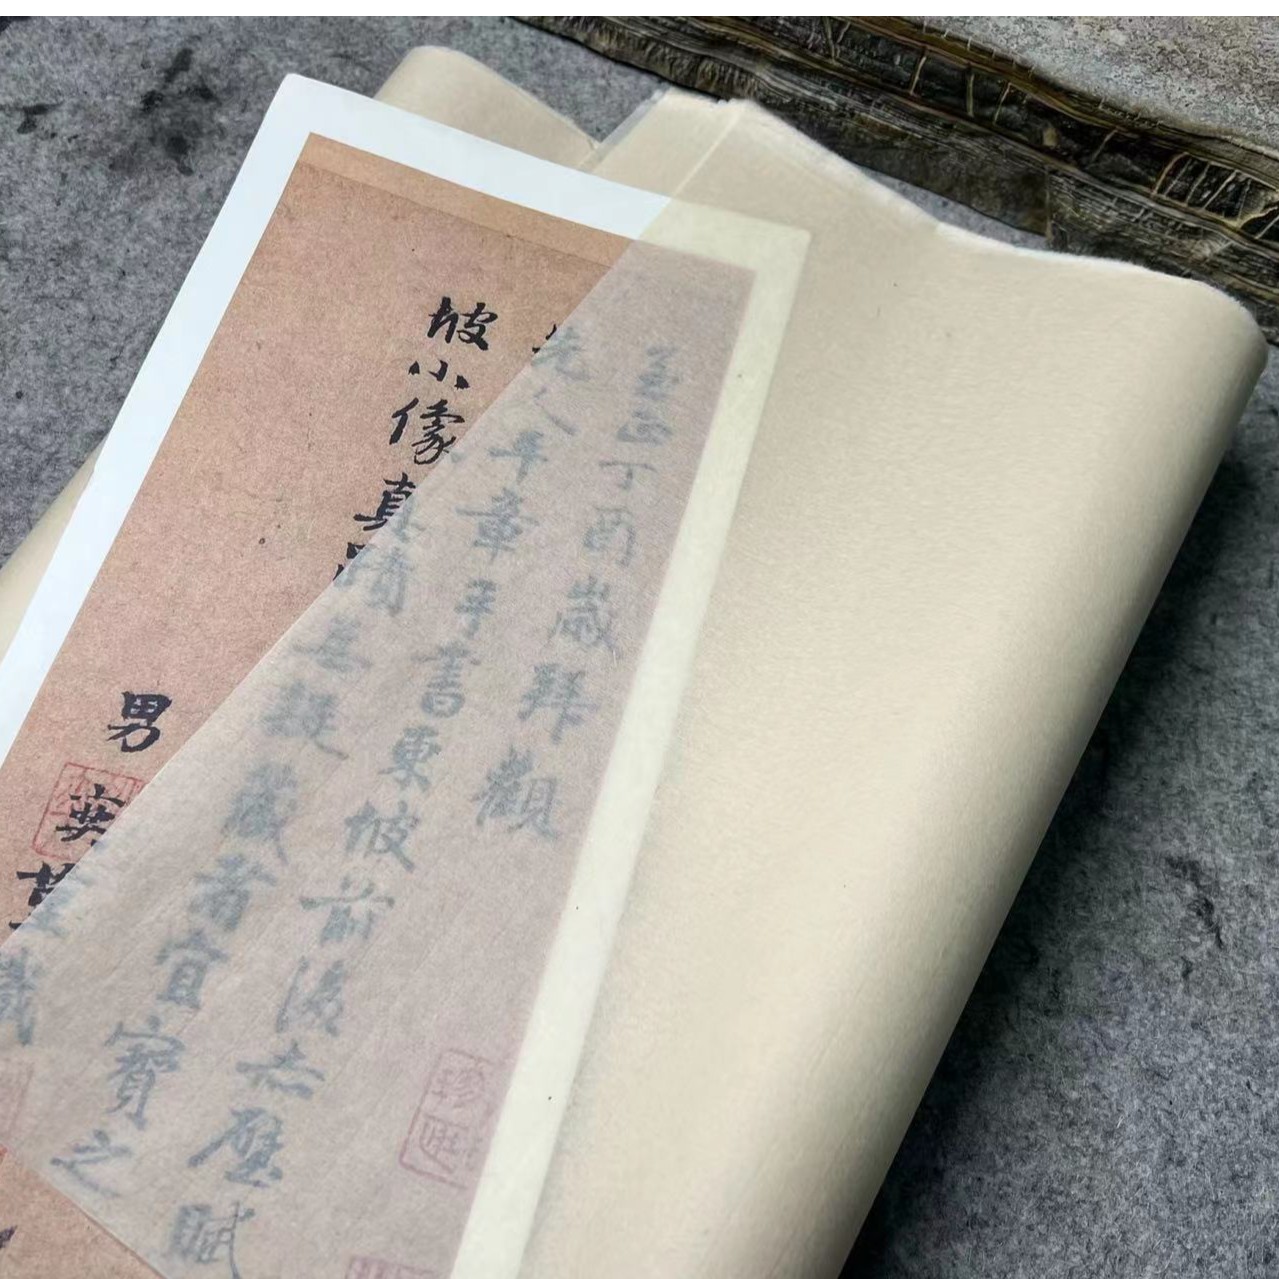 至正丁酉歲拜觀
先人平章手書東坡前後赤壁賦
坡小像真蹟無疑藏者宜寶之
男奕識